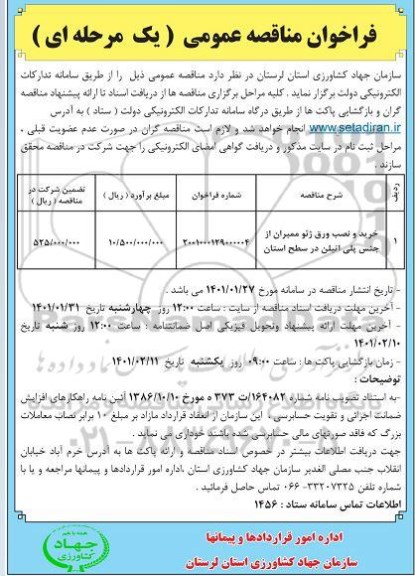 فراخوان مناقصه عمومی ( یک مرحله ای )
سازمان جهاد کشاورزی استان لرستان در نظر دارد مناقصه عمومی ذیل را از طریق سامانه تدارکات
الکترونیکی دولت برگزار نماید . کلیه مراحل برگزاری مناقصه ها از دریافت اسناد تا ارائه پیشنهاد مناقصه
گران و بازگشایی پاکت ها از طریق درگاه سامانه تدارکات الکترونیکی دولت ( ستاد ) به آدرس
www.setadiran.ir انجام خواهد شد و لازم است مناقصه گران در صورت عدم عضویت قبلی ،
مراحل ثبت نام در سایت مذکور و دریافت گواهی امضای الکترونیکی را جهت شرکت در مناقصه محقق
سازند .
ردیف شرح مناقصه شماره فراخوان مبلغ برآورد ( ریال ) تضمین شرکت در مناقصه ( ریال )
۱ خرید و نصب ورق ژئو ممبران از جنس پلی اتیلن در سطح استان ۲۰۰۱۰۰۰۱۲۹۰۰۰۰۰۴ ۱۰/۵۰۰/۰۰۰/۰۰۰ ۵۲۵/۰۰۰/۰۰۰
- تاریخ انتشار مناقصه در سامانه مورخ ۱۴۰۱/۰۱/۲۷ می باشد .
- آخرین مهلت دریافت اسناد مناقصه از سایت : ساعت ۱۲:۰۰ روز چهارشنبه تاریخ ۱۴۰۱/۰۱/۳۱
- آخرین مهلت ارائه پیشنهاد وتحویل فیزیکی اصل ضمانتنامه : ساعت ۱۲:۰۰ روز شنبه تاریخ
۱۴۰۱/۰۲/۱۰
- زمان بازگشایی پاکت ها : ساعت ۰۹:۰۰ روز یکشنبه تاریخ ۱۴۰۱/۰۲/۱۱
توضیحات :
-به استناد تصویب نامه شماره ۱۶۴۰۸۲/ت ۳۷۳ ه مورخ ۱۳۸۶/۱۰/۱۰ آئین نامه راهکارهای افزایش
ضمانت اجرائی و تقویت حسابرسی ، این سازمان از انعقاد قرارداد مازاد بر مبلغ ۱۰ برابر نصاب معاملات
بزرگ که فاقد صورتهای مالی حسابرسی شده باشند خودداری می نماید .
جهت دریافت اطلاعات بیشتر در خصوص اسناد مناقصه و ارائه پاکت ها به آدرس خرم آباد خیابان
انقلاب جنب مصلی الغدیر سازمان جهاد کشاورزی استان ،اداره امور قراردادها و پیمانها مراجعه و یا با
شماره تلفن ۳۳۲۰۷۳۲۵- ۰۶۶ تماس حاصل فرمائید .
اطلاعات تماس سامانه ستاد : ۱۴۵۶
اداره امور قراردادها و پیمانها
سازمان جهاد کشاورزی استان لرستان
جهاد
کشاورزی